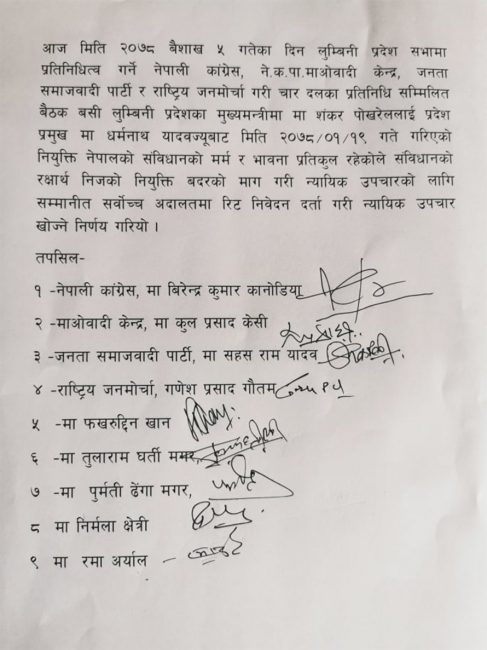 आज मिति २०७८ बैशाख ५ गतेका दिन लुम्बिनी प्रदेश सभामा
प्रतिनिधित्व गर्ने नेपाली कांग्रेस, ने.क.पा.माओवादी केन्द्र, जनता
समाजवादी पार्टी र राष्ट्रिय जनमोर्चा गरी चार दलका प्रतिनिधि सम्मिलित
बैठक बसी लुम्बिनी प्रदेशका मुख्यमन्त्रीमा मा शंकर पोखरेललाई प्रदेश
प्रमुख मा धर्मनाथ यादवज्यूबाट मिति २०७८/०१/१९ गते गरिएको
नियुक्ति नेपालको संविधानको मर्म र भावना प्रतिकुल रहेकोले संविधानको
रक्षार्थ निजको नियुक्ति बदरको माग गरी न्यायिक उपचारको लागि
सम्मानीत सर्वोच्च अदालतमा रिट निवेदन दर्ता गरी न्यायिक उपचार
खोज्ने निर्णय गरियो ।
तपसिल-
१ -नेपाली कांग्रेस, मा बिरेन्द्र कुमार कानोडिया
२ -माओवादी केन्द्र, मा कुल प्रसाद केसी
३ -जनता समाजवादी पार्टी, मा सहस राम यादव
४ -राष्ट्रिय जनमोर्चा, गणेश प्रसाद गौतम
५ -मा फखरुद्दिन खान
६ -मा तुलाराम घर्ती मगर,
७ -मा पुर्मती ढेंगा मगर,
८ मा निर्मला क्षेत्री
९ मा रमा अर्याल -